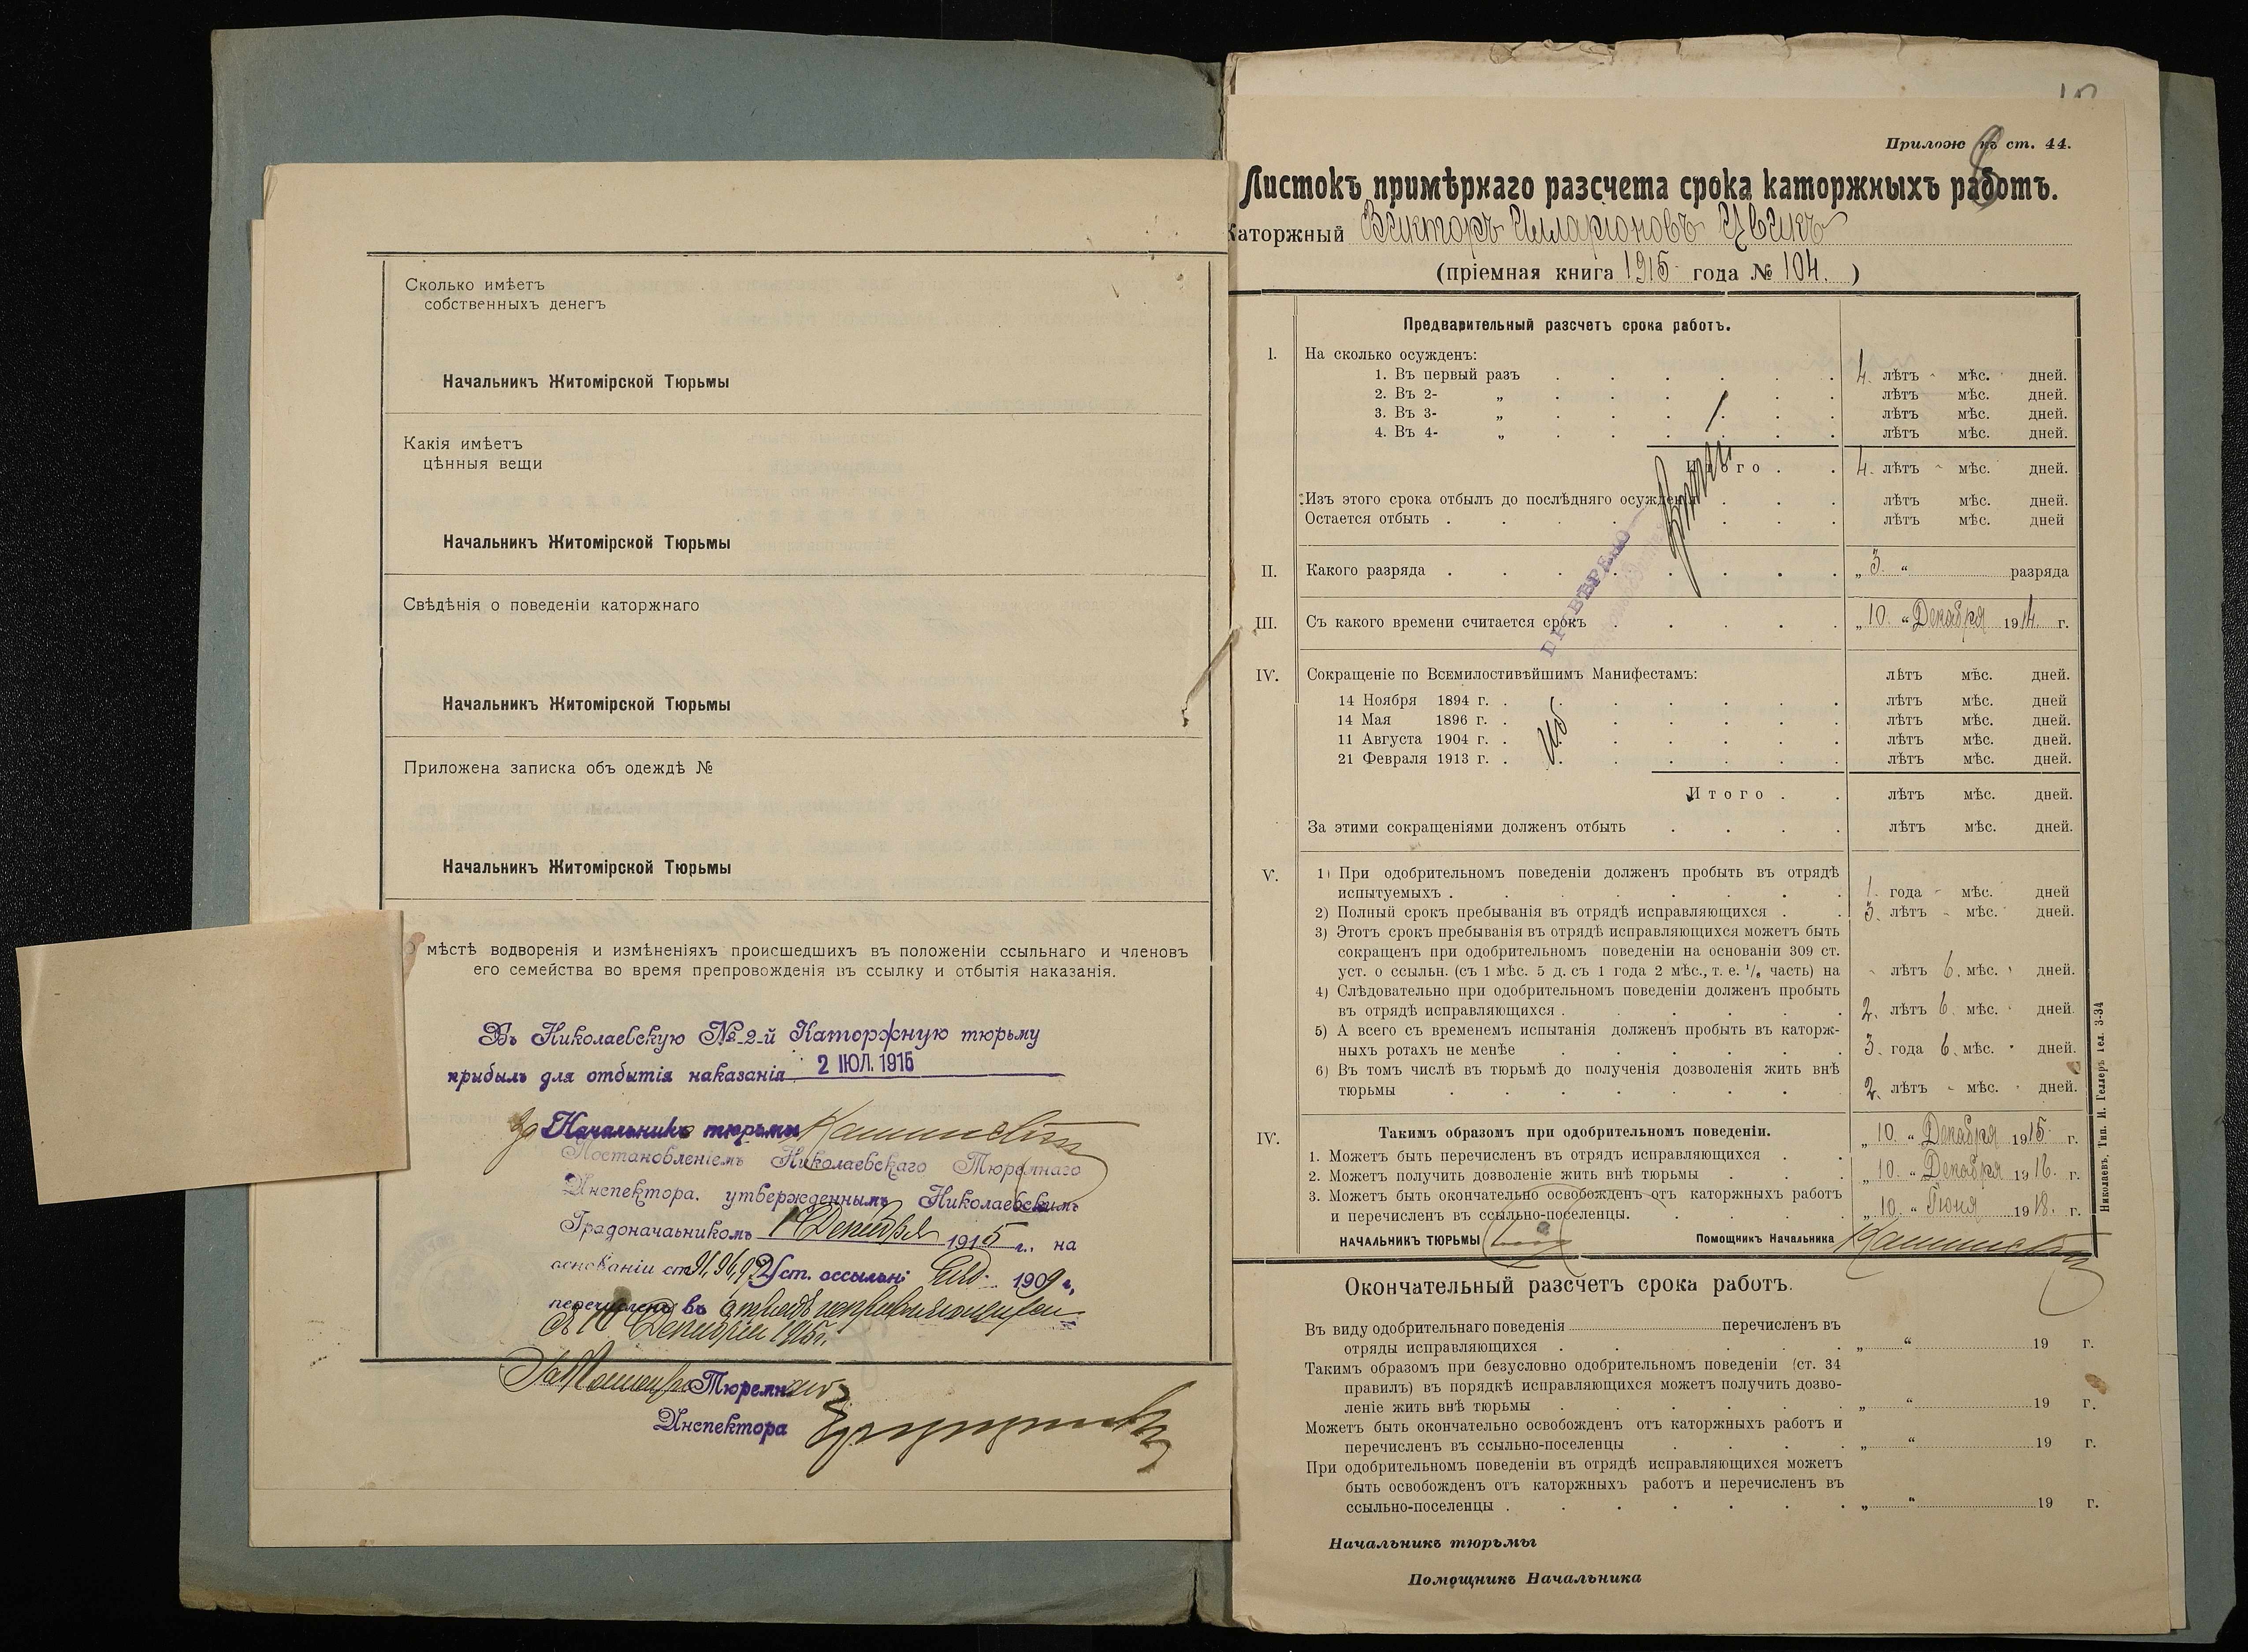 Сколько имѣетъ
собственныхъ денегъ
Начальникъ Житомірской Тюрьмы
Какія имѣетъ
цѣнныя вещи
Начальникъ Житомірской Тюрьмы
Свѣдѣнія о поведеніи каторжнаго
Начальникъ Житомірской Тюрьмы
Приложена записка объ одеждѣ №
Начальникъ Житомірской Тюрьмы
О мѣстѣ водворенія и измѣненіяхъ происшедшихъ въ положеніи ссыльнаго и членовъ
его семейства во время препровожденія въ ссылку и отбытія наказанія.
Въ Николаевскую №-2-й Каторжную тюрьму
прибылъ для отбытія наказанія 2 ІЮЛ. 1915
Начальникъ тюрьмы
Постановленіемъ Николаевскаго Тюремнаго
Инспектора, утвержденнымъ Николаевскимъ
Градоначаьникомъ 1 Декабря 1915 г., на
основаніи ст. 91, 96, 92 Уст. оссыльн: изд. 1909 г,
перечисленъ въ отрядъ исправляющихся
съ 10 Декабря 1915 г.
Тюремнаго
Инспектора
Прилож къ ст. 44.
Листокъ примѣрнаго разсчета срока каторжныхъ работъ.
Каторжный Викторъ Илларіоновъ Цвикъ
(пріемная книга 1915 года № 104. )
Предварительный разсчетъ срока работъ.
I. На сколько осужденъ:
1. Въ первый разъ . . . . . . 4. лѣтъ - мѣс. дней.
2. Въ 2- „ . . . . . . лѣтъ мѣс. дней.
3. Въ 3- „ . . . . . . лѣтъ мѣс. дней.
4. Въ 4- „ . . . . . . лѣтъ мѣс. дней.
Итого . . 4. лѣтъ - мѣс. дней.
Изъ этого срока отбылъ до послѣдняго осужденія . . . лѣтъ мѣс. дней.
Остается отбыть . . . . . . . . лѣтъ мѣс. дней
ПРОВѢРЕНО
II. Какого разряда . . . . . . . . „ 3. “ разряда
III. Съ какого времени считается срокъ . . . . . „ 10. “ Декабря 1914. г.
IV. Сокращеніе по Всемилостивѣйшимъ Манифестамъ: лѣтъ мѣс. дней.
14 Ноября 1894 г. . . . . . . . лѣтъ мѣс. дней
14 Мая 1896 г. . . . . . . . лѣтъ мѣс. дней.
11 Августа 1904 г. . . . . . . . лѣтъ мѣс. дней.
21 Февраля 1913 г. . . . . . . . лѣтъ мѣс. дней.
Итого . . лѣтъ мѣс. дней.
За этими сокращеніями долженъ отбыть . . . . лѣтъ мѣс. дней.
V. 1) При одобрительномъ поведеніи долженъ пробыть въ отрядѣ
испытуемыхъ . . . . . . . . 1. года - мѣс. дней
2) Полный срокъ пребыванія въ отрядѣ исправляющихся . . 3. лѣтъ - мѣс. дней.
3) Этотъ срокъ пребыванія въ отрядѣ исправляющихся можетъ быть
сокращенъ при одобрительномъ поведеніи на основаніи 309 ст.
уст. о ссыльн. (съ 1 мѣс. 5 д. съ 1 года 2 мѣс., т. е. 1/6 часть) на - лѣтъ 6. мѣс. дней.
4) Слѣдовательно при одобрительномъ поведеніи долженъ пробыть
въ отрядѣ исправляющихся . . . . . . 2. лѣтъ 6. мѣс. дней.
5) А всего съ временемъ испытанія долженъ пробыть въ каторж-
ныхъ ротахъ не менѣе . . . . . . 3. года 6. мѣс. дней.
6) Въ томъ числѣ въ тюрьмѣ до полученія дозволенія жить внѣ
тюрьмы . . . . . . . . 2. лѣтъ - мѣс. - дней.
IV. Такимъ образомъ при одобрительномъ поведеніи. „ 10. “ Декабря 1915 г.
1. Можетъ быть перечисленъ въ отрядъ исправляющихся . .
2. Можетъ получить дозволеніе жить внѣ тюрьмы . . . „ 10. “ Декабря 1916. г.
3. Можетъ быть окончательно освобожденъ отъ каторжныхъ работъ
и перечисленъ въ ссыльно-поселенцы. . . . . „ 10. “ Іюня 1918. г.
НАЧАЛЬНИКЪ ТЮРЬМЫ Помощникъ Начальника
Николаевъ, Тип. И. Геллеръ тел. 3-34
Окончательный разсчетъ срока работъ.
Въ виду одобрительнаго поведенія перечисленъ въ
отряды исправляющихся . . . . . . „ “ 19 г.
Такимъ образомъ при безусловно одобрительномъ поведеніи (ст. 34
правилъ) въ порядкѣ исправляющихся можетъ получить дозво-
леніе жить внѣ тюрьмы . . . . . . „ “ 19 г.
Можетъ быть окончательно освобожденъ отъ каторжныхъ работъ и
перечисленъ въ ссыльно-поселенцы . . . . „ “ 19 г.
При одобрительномъ поведеніи въ отрядѣ исправляющихся можетъ
быть освобожденъ отъ каторжныхъ работъ и перечисленъ въ
ссыльно-поселенцы . . . . . . . „ “ 19 г.
Начальникъ тюрьмы
Помощникъ Начальника